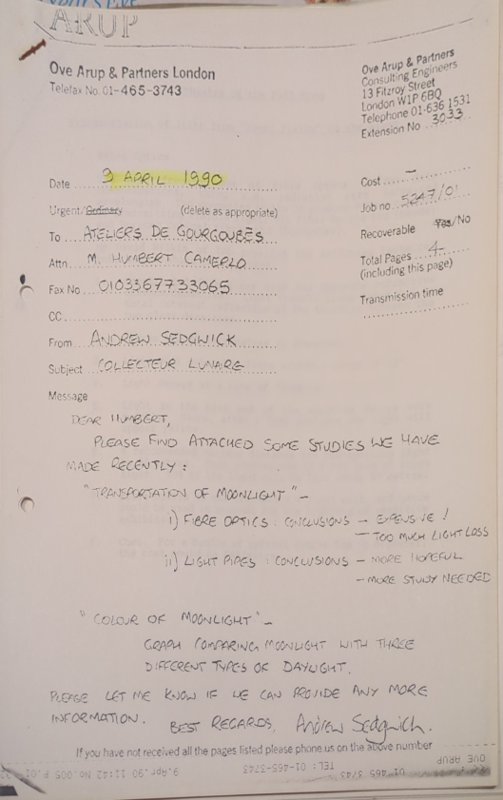 ARUP
Ove Arup & Partners London
Telefax No. 01-465-3743
Ove Arup & Partners
Consulting Engineers
13 Fitzroy Street
London W1P 6BQ
Telephone 01-636 1531
Extension No 3033
Date 9 APRIL 1990
Urgent/Ordinary (delete as appropriate)
To ATELIERS DE GOURGOUBÈS
Attn M. HUMBERT CAMERLO
Fax No 0103367733065
CC
From ANDREW SEDGWICK
Subject COLLECTEUR LUNAIRE
Cost –
Job no 5247/01
Recoverable Yes/No
Total Pages 4
(including this page)
Transmission time
Message
DEAR HUMBERT,
PLEASE FIND ATTACHED SOME STUDIES WE HAVE
MADE RECENTLY :
"TRANSPORTATION OF MOONLIGHT" –
i) FIBRE OPTICS : CONCLUSIONS – EXPENSIVE !
– TOO MUCH LIGHT LOSS
ii) LIGHT PIPES : CONCLUSIONS – MORE HOPEFUL
– MORE STUDY NEEDED
"COLOUR OF MOONLIGHT" –
GRAPH COMPARING MOONLIGHT WITH THREE
DIFFERENT TYPES OF DAYLIGHT.
PLEASE LET ME KNOW IF WE CAN PROVIDE ANY MORE
INFORMATION.
BEST REGARDS, Andrew Sedgwick.
If you have not received all the pages listed please phone us on the above number
OVE ARUP
TEL: 01-465-3743
9.Apr.90 11:42 No.005 P.01